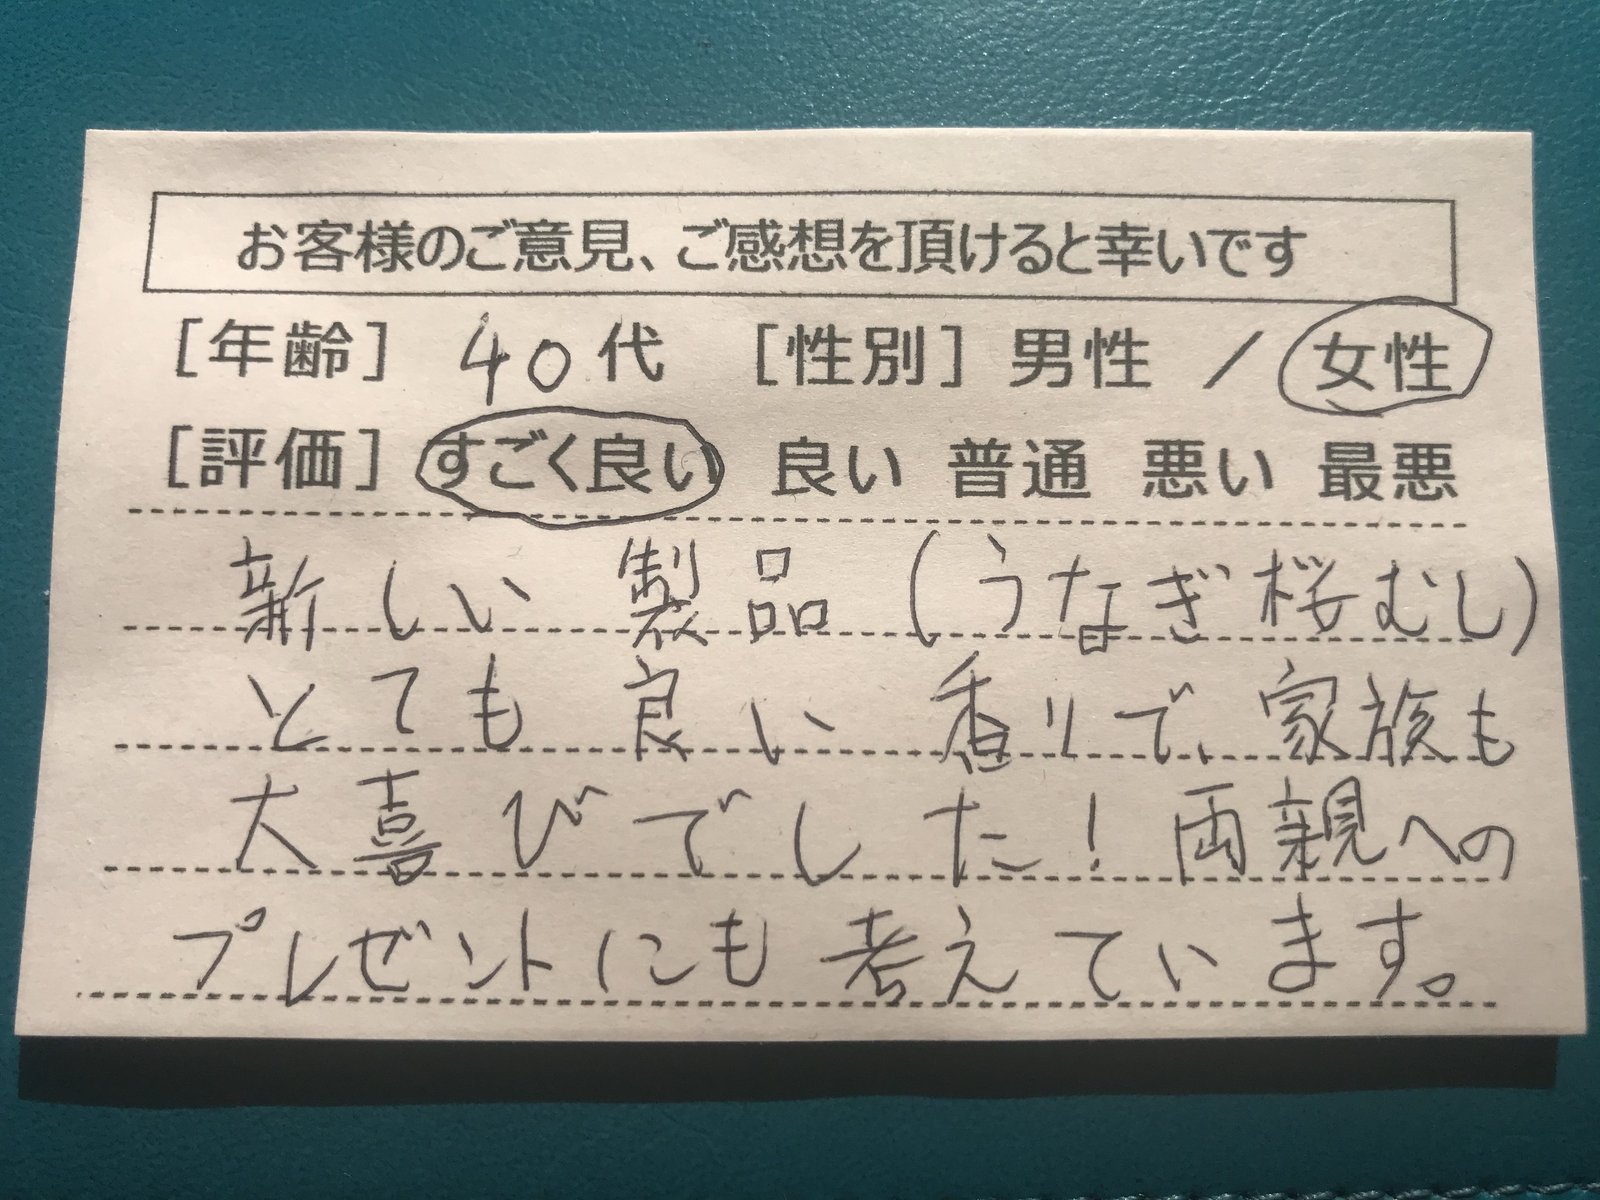 お客様のご意見、ご感想を頂けると幸いです
[年齢] 40代 [性別] 男性 / 女性
[評価] すごく良い 良い 普通 悪い 最悪
新しい製品(うなぎ桜むし)
とても良い香りで、家族も
大喜びでした!両親への
プレゼントにも考えています。